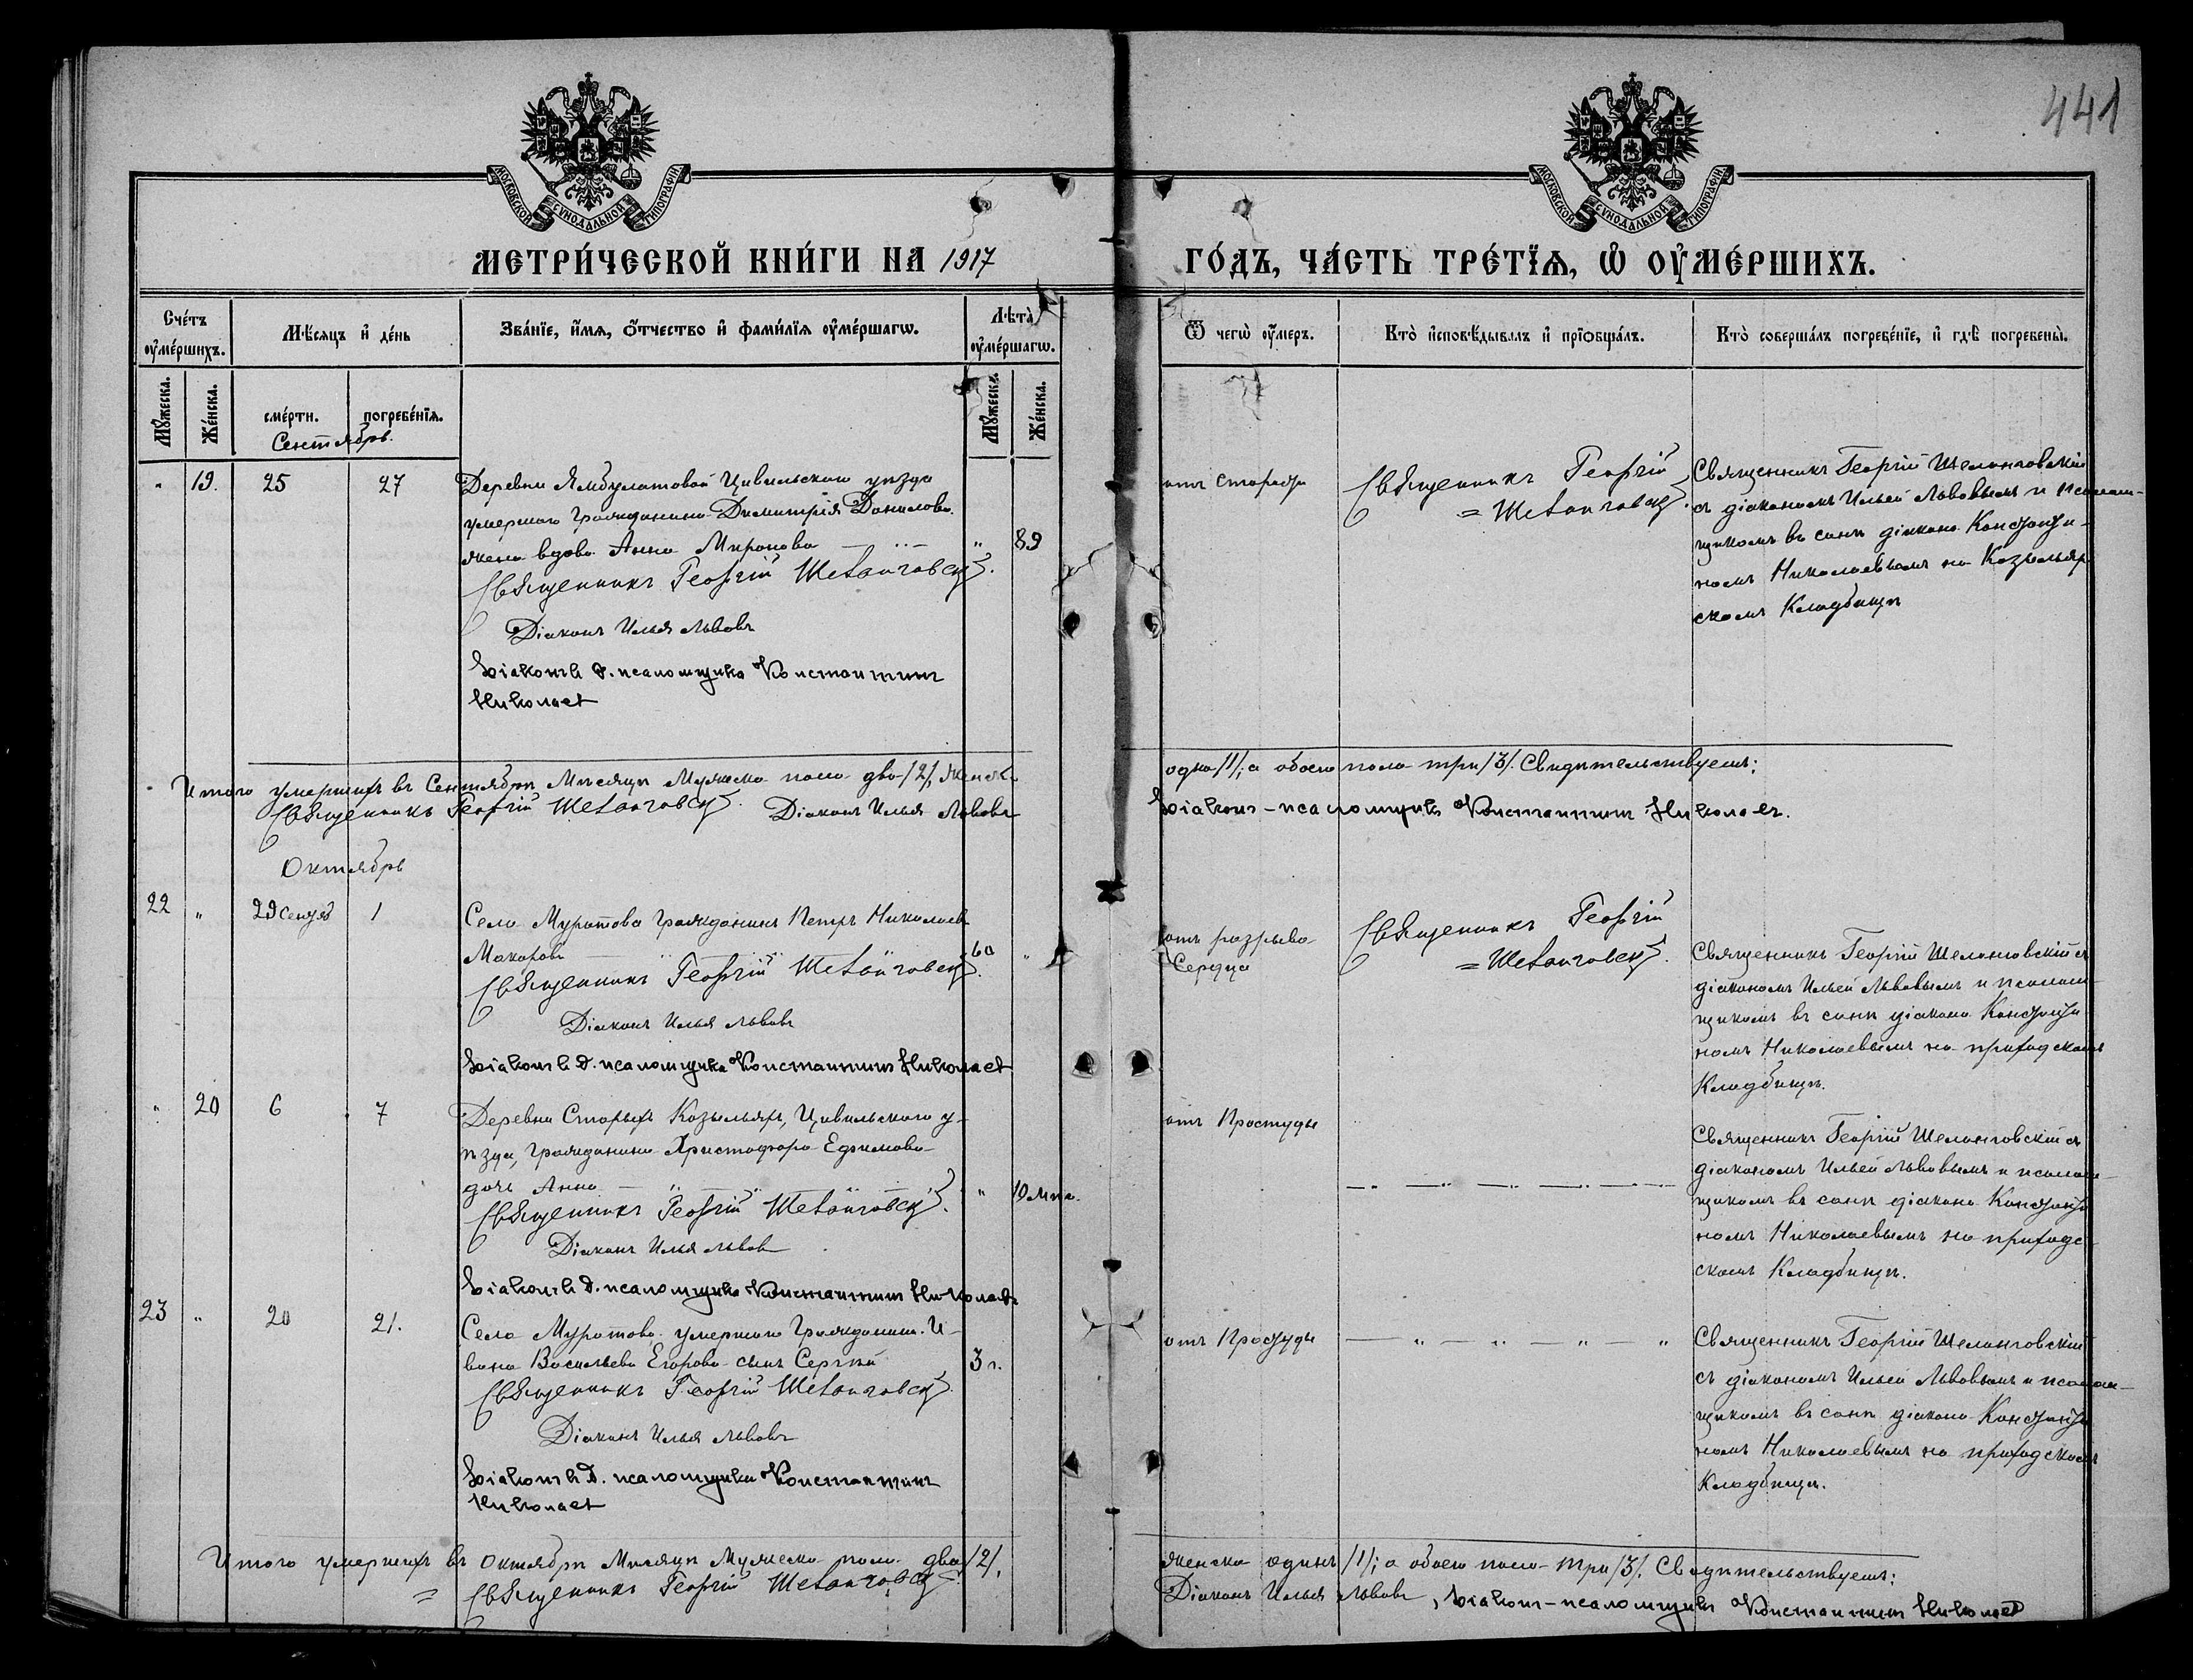 441
МОСКОВСКОЙ СѴНОДАЛЬНОЙ ТИПОГРАФІИ
МОСКОВСКОЙ СѴНОДАЛЬНОЙ ТИПОГРАФІИ
МЕТРИ́ЧЕСКОЙ КНИ́ГИ НА 1917
ГО́ДЪ, ЧА́СТЬ ТРЕ́ТЇѦ, Ѡ ОУМЕ́РШИХЪ.
Сче́тъ оуме́ршихъ.
Мѣ́сяцъ и де́нь
Зва́нїе, и́мя, о́тчество и фами́лїя оуме́ршагѡ.
Лѣта̀ оуме́ршагѡ.
Ѿ чегѡ̀ оу́меръ.
Кто̀ и҆сповѣ́дывалъ и҆ прїѡбща́лъ.
Кто̀ соверша́лъ погребе́нїе, и҆ гдѣ̀ погребены̀.
Мꙋ́жеска.
Же́нска.
сме́рти.
погребе́нїя.
Мꙋ́жеска.
Же́нска.
Сентябрь.
" 19. 25 27
Деревни Ямбулатовой Цивильскаго уѣзда
умершаго гражданина Димитрія Данилова
жена вдова Анна Миронова " 89
Священникъ Георгій Шелонговскій.
Діаконъ Илья Львовъ
Діаконъ в д. псаломщика Константинъ
Николаев
отъ старости
Священникъ Георгій
= Шелонговскій.
Священникъ Георгій Шелонговскій
съ діакономъ Ильей Львовымъ и псалом-
щикомъ въ санѣ діакона Константи-
номъ Николаевымъ на Козыльяр
скомъ Кладбищѣ
Итого умершихъ въ Сентябрѣ Мѣсяцѣ Мужеска пола два /2/, Женска
одна /1/; а обоего пола три /3/. Свидѣтельствуемъ:
Священникъ Георгій Шелонговскій. Діаконъ Илья Львовъ
Діаконъ-псаломщикъ Константинъ Николаев.
Октябрь
22 " 29 Сентяб 1
Села Муратова гражданинъ Петръ Николаев
Макаровъ 60 "
Священникъ Георгій Шелонговскій.
Діаконъ Илья Львовъ
Діаконъ в д. псаломщика Константинъ Николаев
отъ разрыва
Сердца
Священникъ Георгій
= Шелонговскій.
Священникъ Георгій Шелонговскій съ
діакономъ Ильей Львовымъ и псалом-
щикомъ въ санѣ діакона Константи
номъ Николаевымъ на приходскомъ
Кладбищѣ.
" 20 6 7
Деревни Старыхъ Козыльяръ, Цивильскаго у-
ѣзда, гражданина Христофора Ефимова
дочь Анна " 10 м.
Священникъ Георгій Шелонговскій.
Діаконъ Илья Львов
Діаконъ в д. псаломщика Константинъ Николаевъ
отъ Простуды
Священникъ Георгій Шелонговскій съ
діакономъ Ильей Львовымъ и псалом-
щикомъ въ санѣ діакона Константи
номъ Николаевымъ на приходс
скомъ Кладбищѣ.
23 " 20 21.
Села Муратова умершаго гражданина И-
вана Васильева Егорова сынъ Сергѣй 3 г.
Священникъ Георгій Шелонговскій.
Діаконъ Илья Львовъ
Діаконъ в д. псаломщика Константинъ
Николаев
отъ Простуды
Священникъ Георгій Шелонговскій
съ діакономъ Ильей Львовымъ и псалом-
щикомъ въ санѣ діакона Константи
номъ Николаевымъ на приходскомъ
Кладбищѣ.
Итого умершихъ въ Октябрѣ Мѣсяцѣ Мужеска пола два /2/,
женска одинъ /1/; а обоего пола три /3/. Свидѣтельствуемъ:
= Священникъ Георгій Шелонговскій.
Діаконъ Илья Львовъ, Діаконъ-псаломщикъ Константинъ Николаев